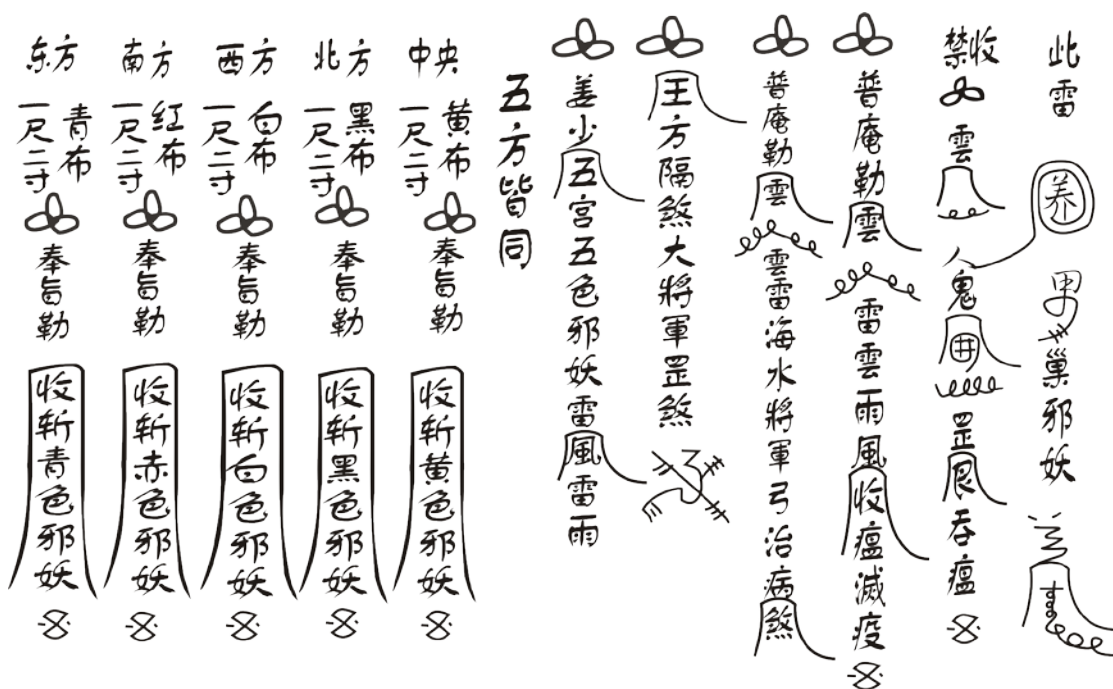 此雷
养
巢邪妖
禁收
雲
人鬼
井
罡艮吞瘟
普庵勒雲
雷雲雨風收瘟滅疫
普庵勒雲
雲雷海水將軍弓治病煞
王方隔煞大將軍罡煞
姜少五宫五色邪妖雷風雷雨
五方皆同
中央
黄布
一尺二寸
奉旨勒
收斩黄色邪妖
北方
黑布
一尺二寸
奉旨勒
收斩黑色邪妖
西方
白布
一尺二寸
奉旨勒
收斩白色邪妖
南方
红布
一尺二寸
奉旨勒
收斩赤色邪妖
东方
青布
一尺二寸
奉旨勒
收斩青色邪妖